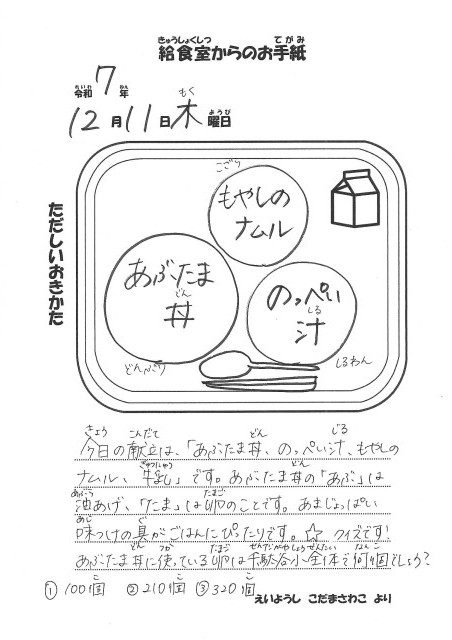 きゅうしょくしつ てがみ
給食室からのお手紙
れいわ ねん
令和7年
もく ようび
12月11日木曜日
ただしいおきかた
こざら
もやしの
ナムル
あぶたま
どん
丼
どんぶり
のっぺい
しる
汁
しるわん
きょう こんだて どん じる
今日の献立は、「あぶたま丼、のっぺい汁、もやしの
ぎゅうにゅう どん
ナムル、牛乳」です。あぶたま丼の「あぶ」は
あぶら たまご
油あげ、「たま」は卵のことです。あまじょっぱい
あじ ぐ
味つけの具がごはんにぴったりです。☆ クイズです!
どん つか たまご せんだがやしょうぜんたい なんこ
あぶたま丼に使っている卵は千駄谷小全体で何個でしょう?
こ こ こ
①100個 ②210個 ③320個
えいようし こだまさわこ より